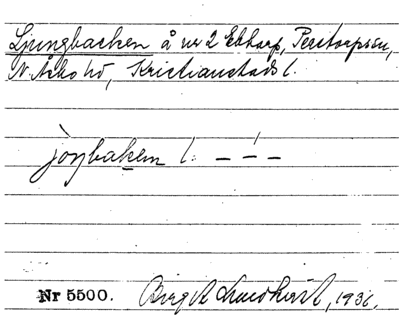 Ljungbacken å nr 2 Ebbarp, Perstorps sn,
N. Åsbo hd, Kristianstads l.
jòŋbaken l. – –́ –
Nr 5500. Birgit Lundkvist, 1936.